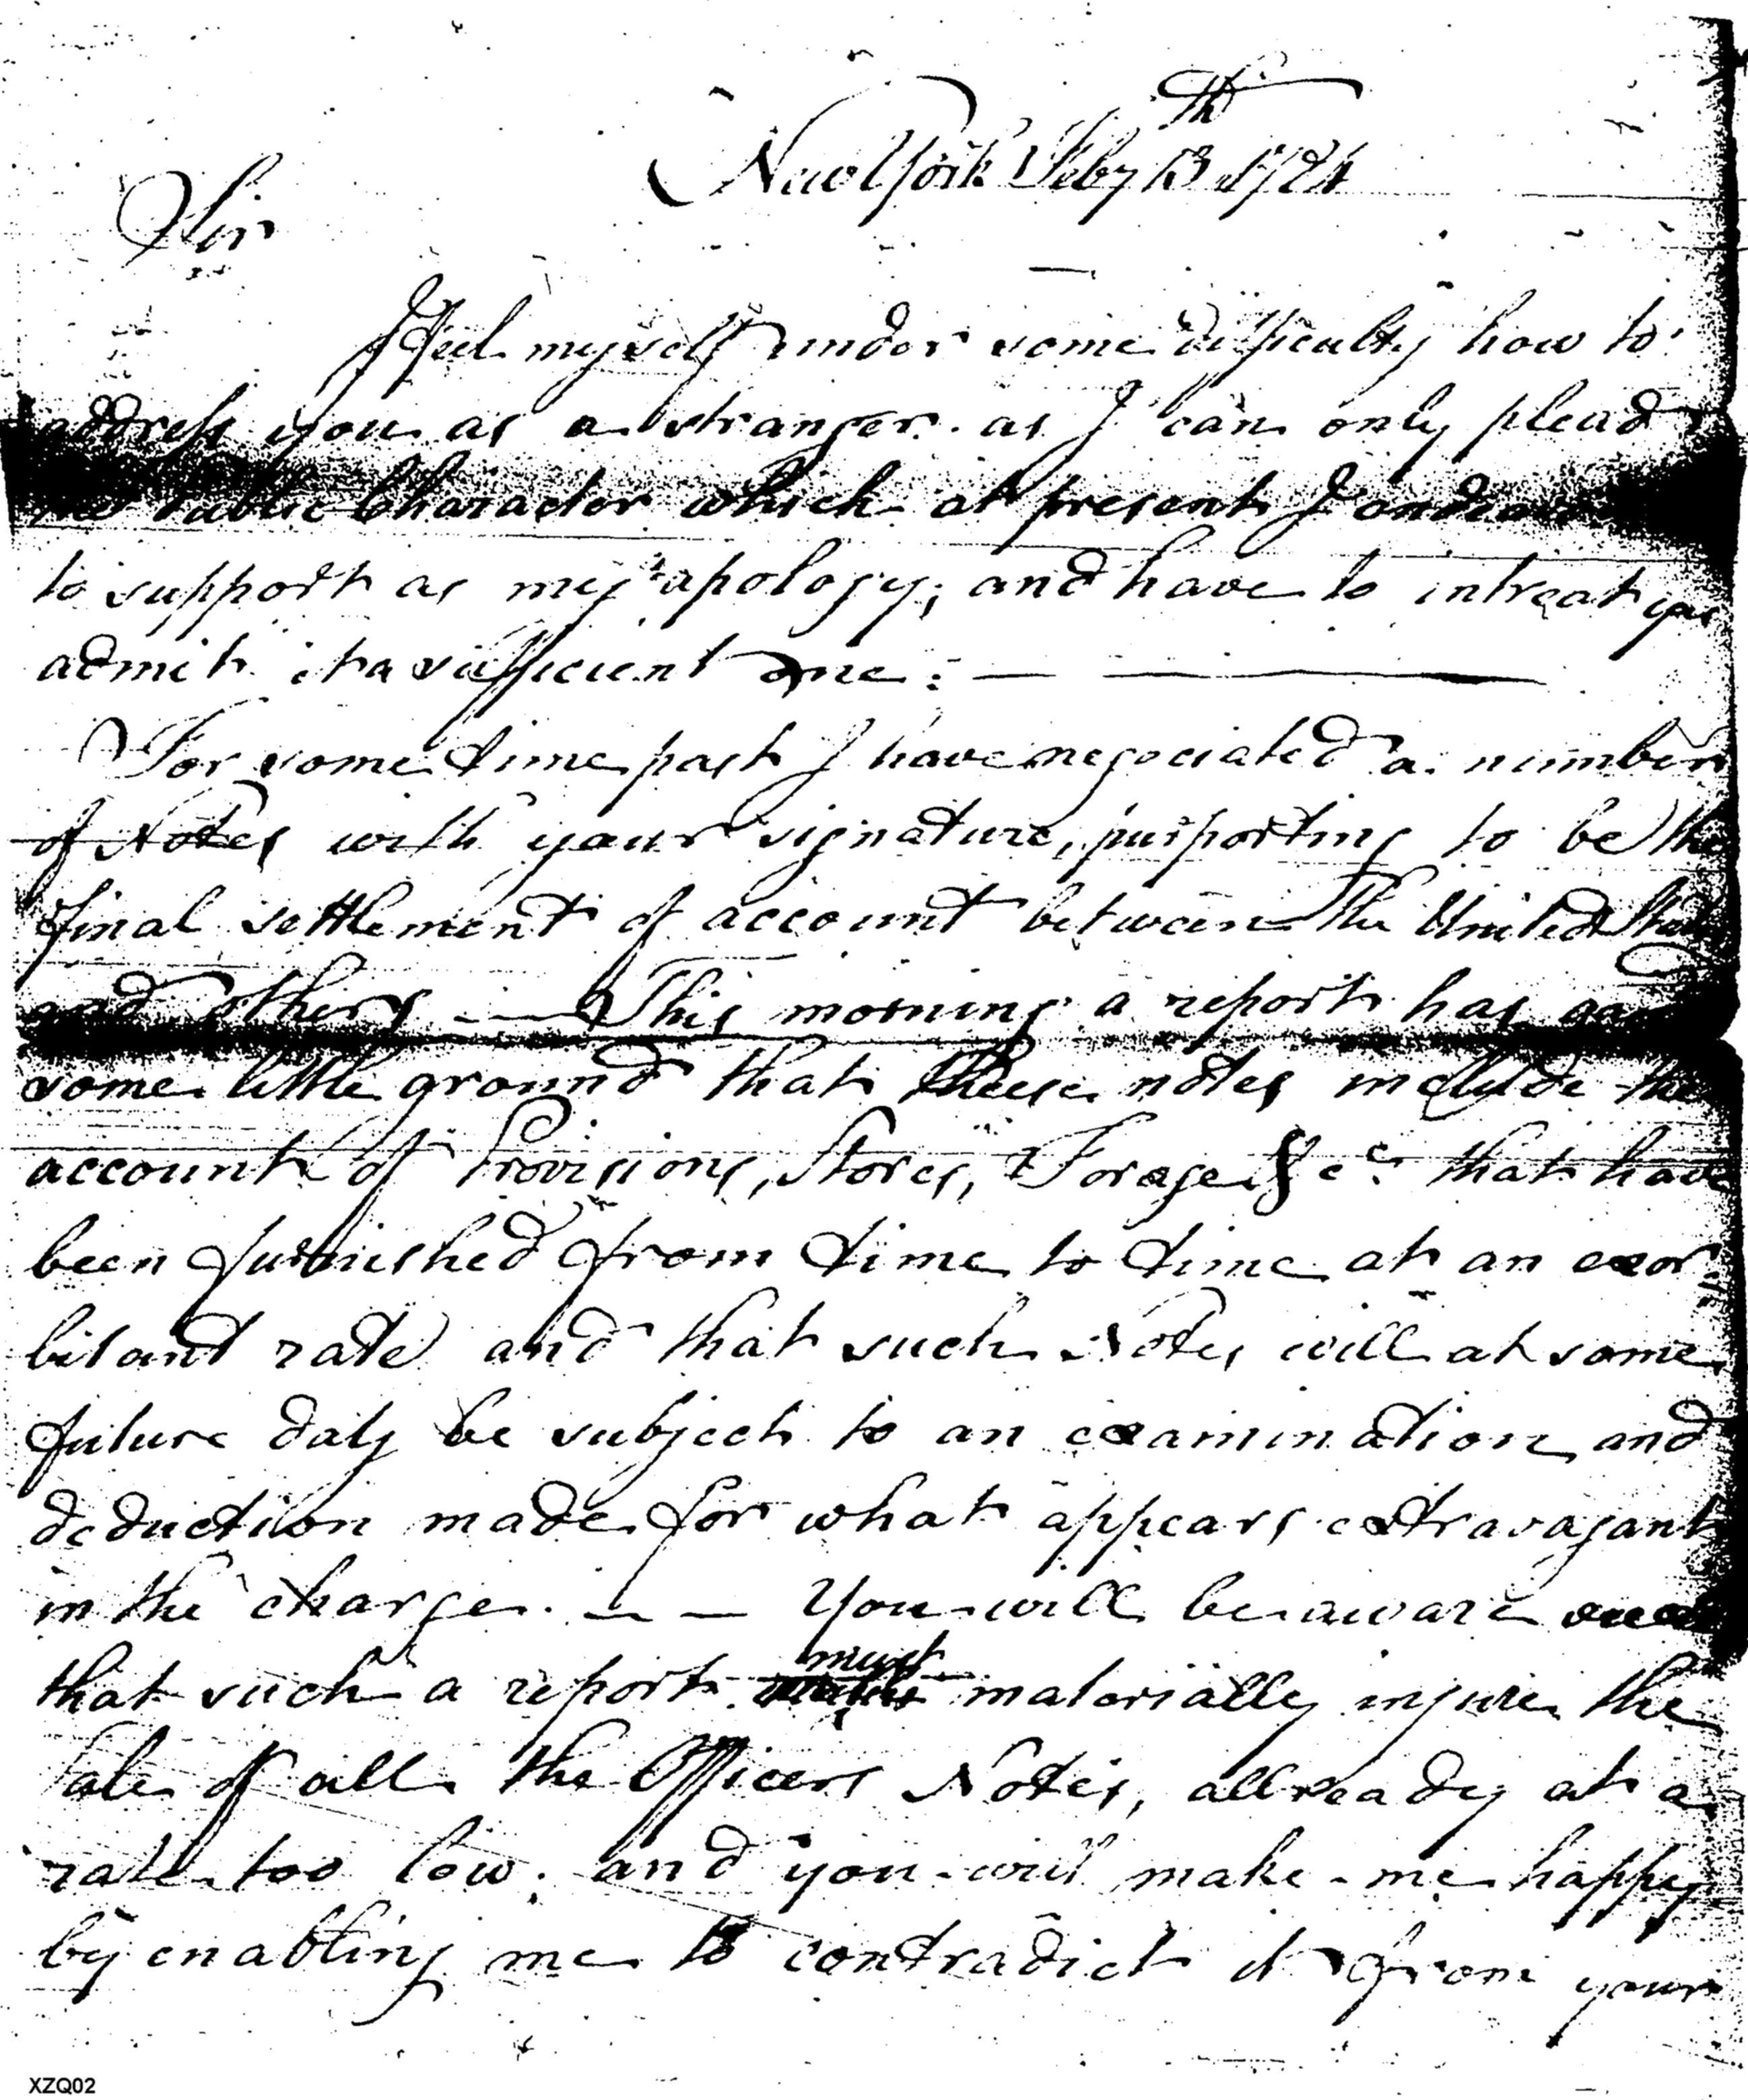 New York Feby 13th 1784
Sir
I feel myself under some difficulty how to
address you as a stranger. as I can only plead
the Public Character which at present I endeavor
to support as my apology; and have to intreat you
admit it a sufficient one : — ———
For some time past I have negociated a number
of Notes with your signature, purporting to be the
final settlement of account between the United States
and others — This morning a report has
some little ground that these notes include the
account of Provisions, Stores, Forage &cc. that have
been furnished from time to time at an exor-
bitant rate and that such Notes will at some
future daty be subject to an examination and
deduction made for what appears extravagant
in the charge. — — You will be aware
that such a report must materially injure the
Sale of all the Officers Notes, allready at a
rate too low. and you will make me happy
by enabling me to contradict it from your
XZQ02